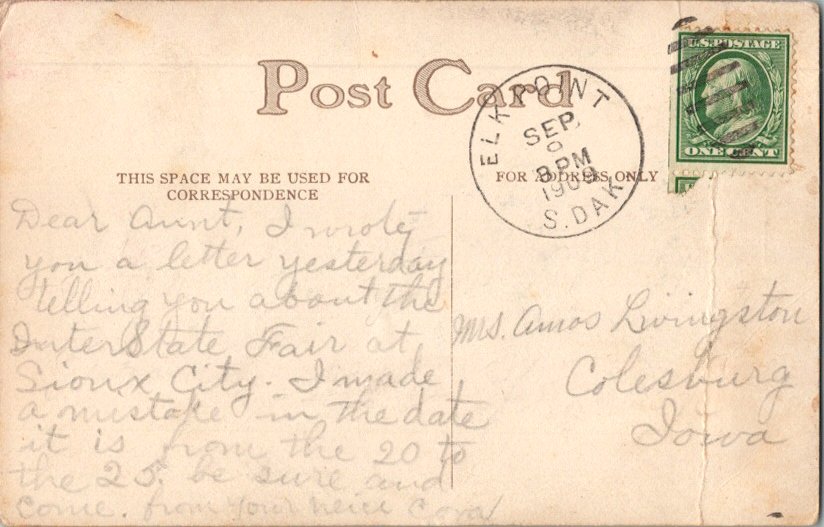 Post Card
U.S. POSTAGE
ONE CENT
ELK POINT
SEP
8 PM
1909
S. DAK
THIS SPACE MAY BE USED FOR
CORRESPONDENCE
FOR ADDRESS ONLY
Dear Aunt, I wrote
you a letter yesterday
telling you about the
InterState Fair at
Sioux City. I made
a mistake in the date
it is from the 20 to
the 25. be sure and
come. from your neice Cora
Mrs. Amos Livingston
Colesburg
Iowa